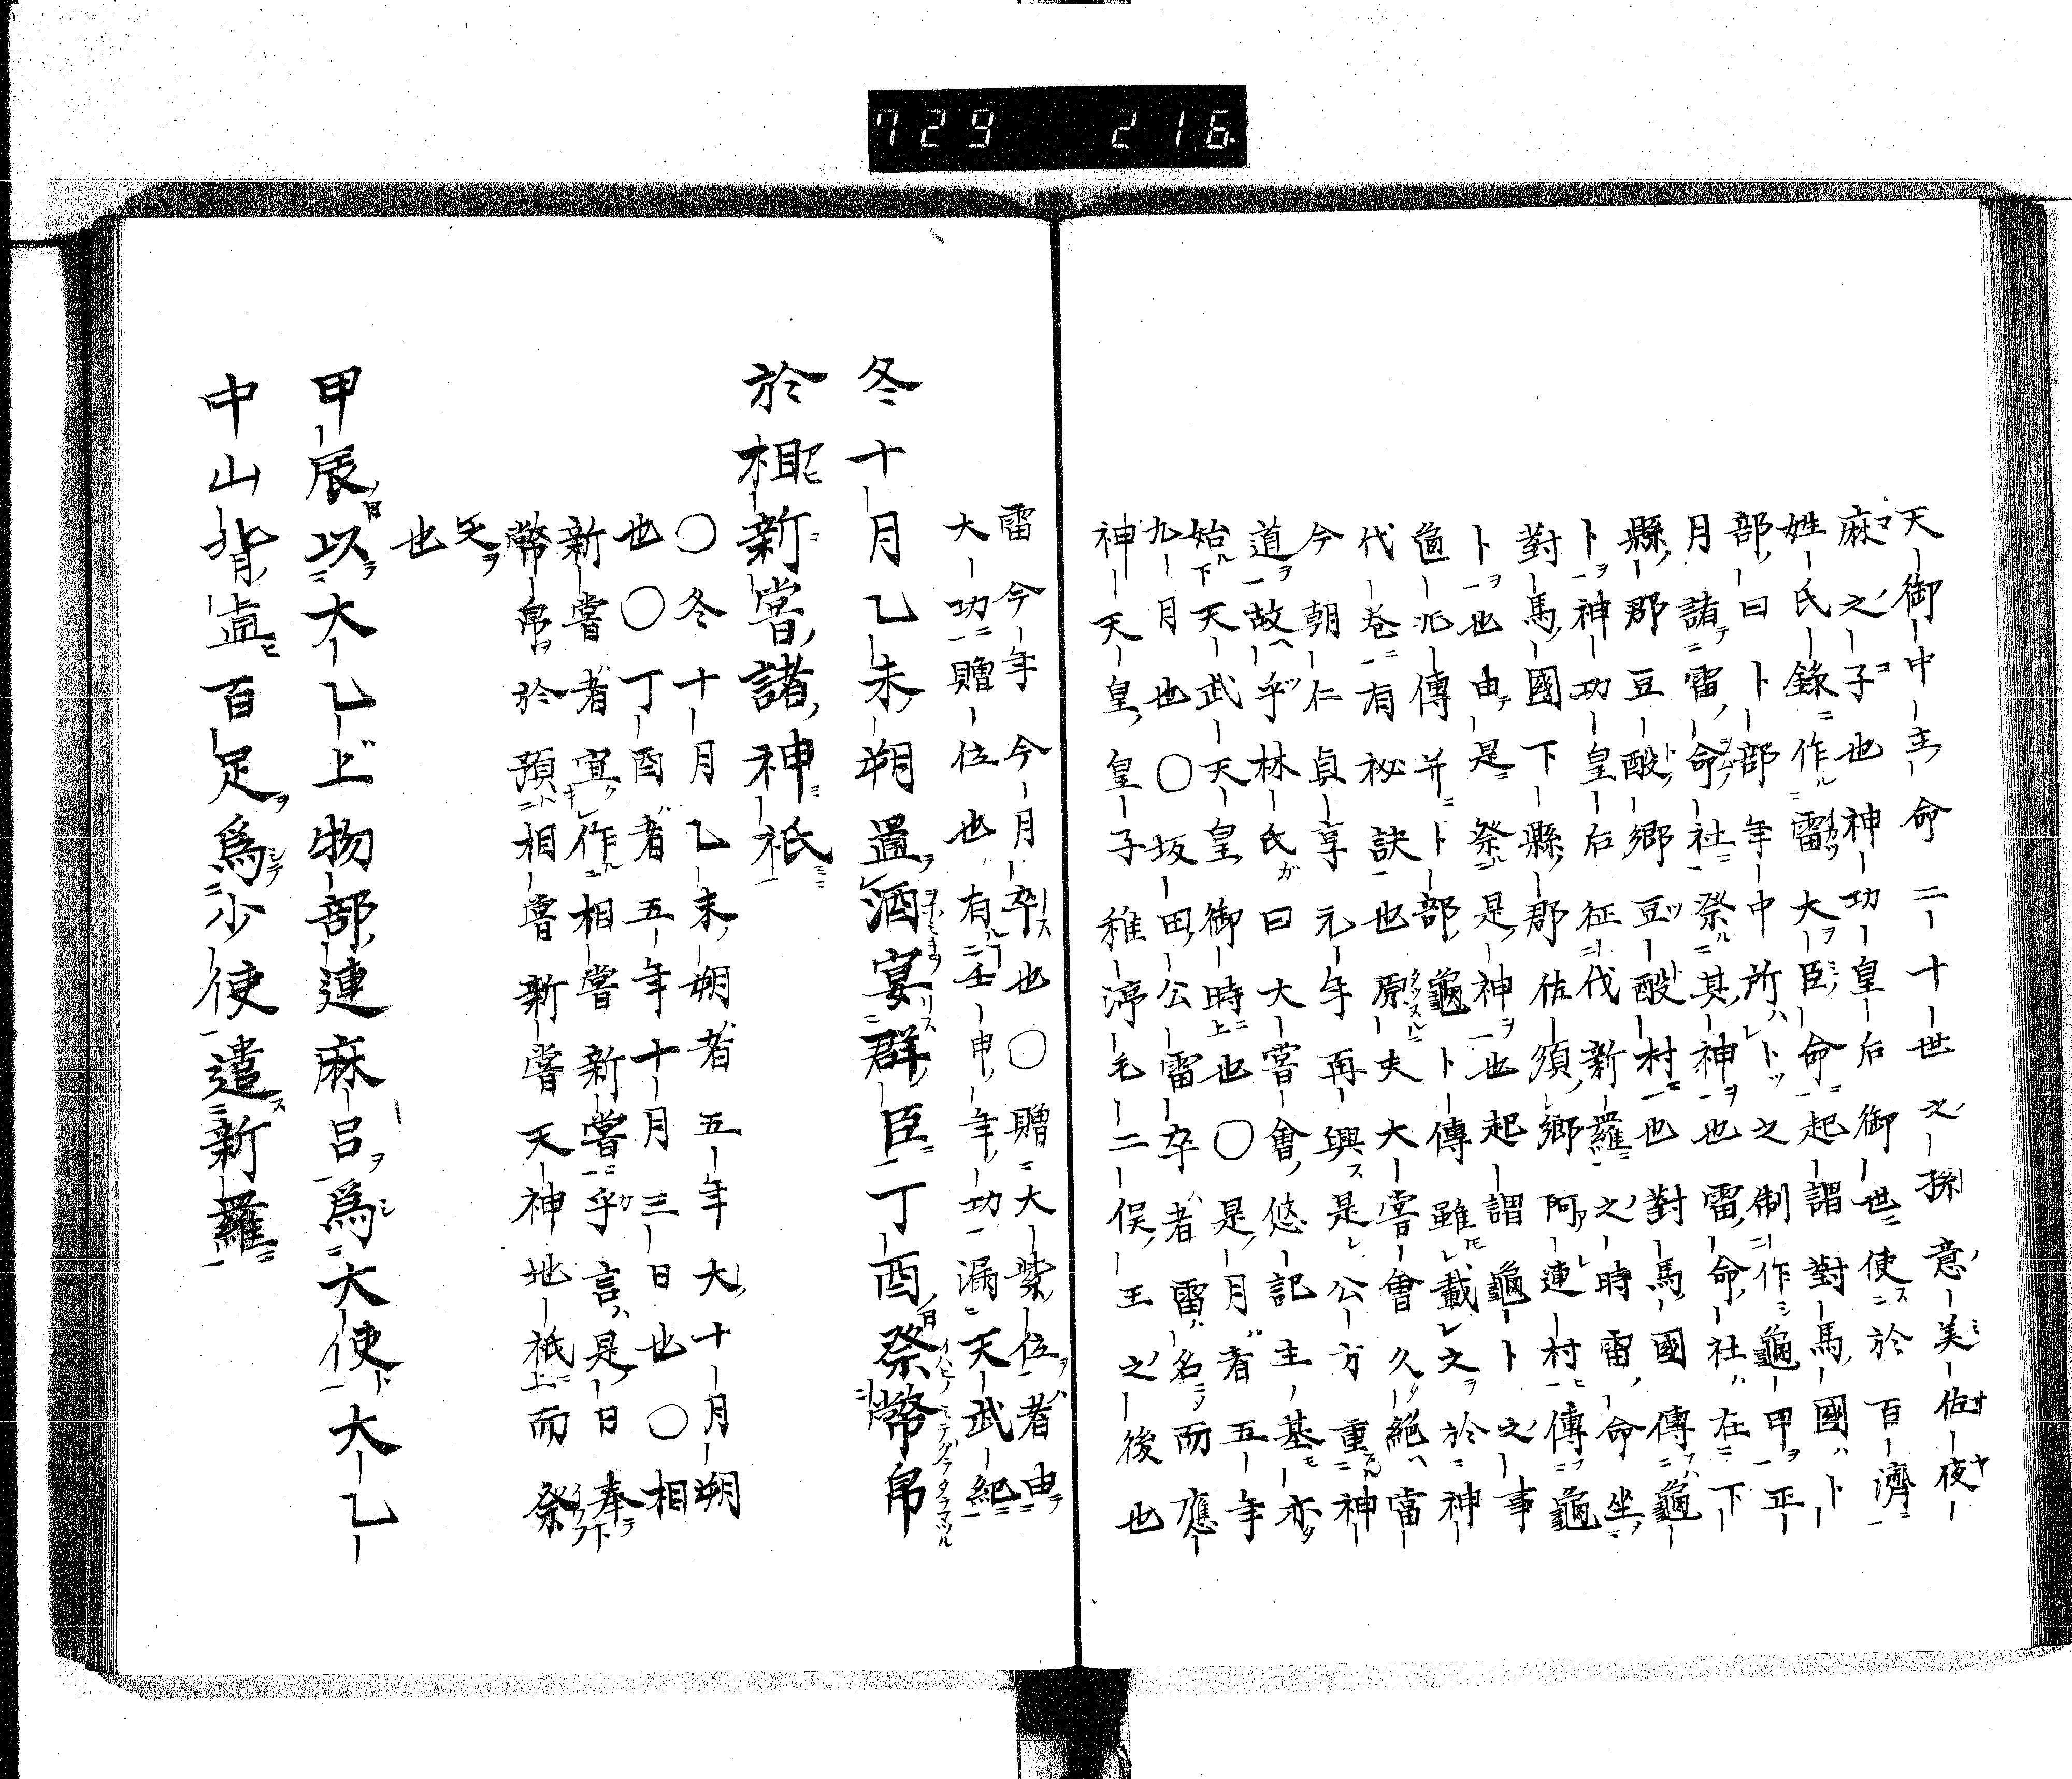 729 216.
天御中主命二十世之孫意美佐夜
麻之子也神功皇后御世使於百濟
姓氏錄作雷大臣命起謂對馬國卜
部曰卜部年中所卜之制作龜甲正
月諸雷命社祭其神也雷命社在下
縣郡豆酘郷豆酘村也對馬國傳龜
卜神功皇后征伐新羅之時雷命坐
對馬國下縣郡佐須郷阿連村傳龜
卜也由是祭是神也起謂龜卜之事
龜兆傳并卜部龜卜傳雖載文於神
代卷有祕訣也原夫大嘗會久絕當
今朝仁貞享元年再興是公方重神
道故乎林氏曰大嘗會悠記主基亦
始天武天皇御時也〇是月者五年
九月也〇坂田公雷卒者雷名而應
神天皇皇子稚渟毛二俣王之後也
雷今年今月卒也〇贈大紫位者由
大功贈位也有壬申年功漏天武紀
冬十月乙未朔置酒宴群臣丁酉祭幣帛
於相新嘗諸神祇
〇冬十月乙未朔者五年大十月朔
也〇丁酉者五年十月三日也〇相
新嘗者宜作相嘗新嘗乎言是日奉
幣帛於預相嘗新嘗天神地祇而祭
矢
也
甲辰以大乙上物部連麻呂爲大使大乙
中山背直百足爲少使遣新羅